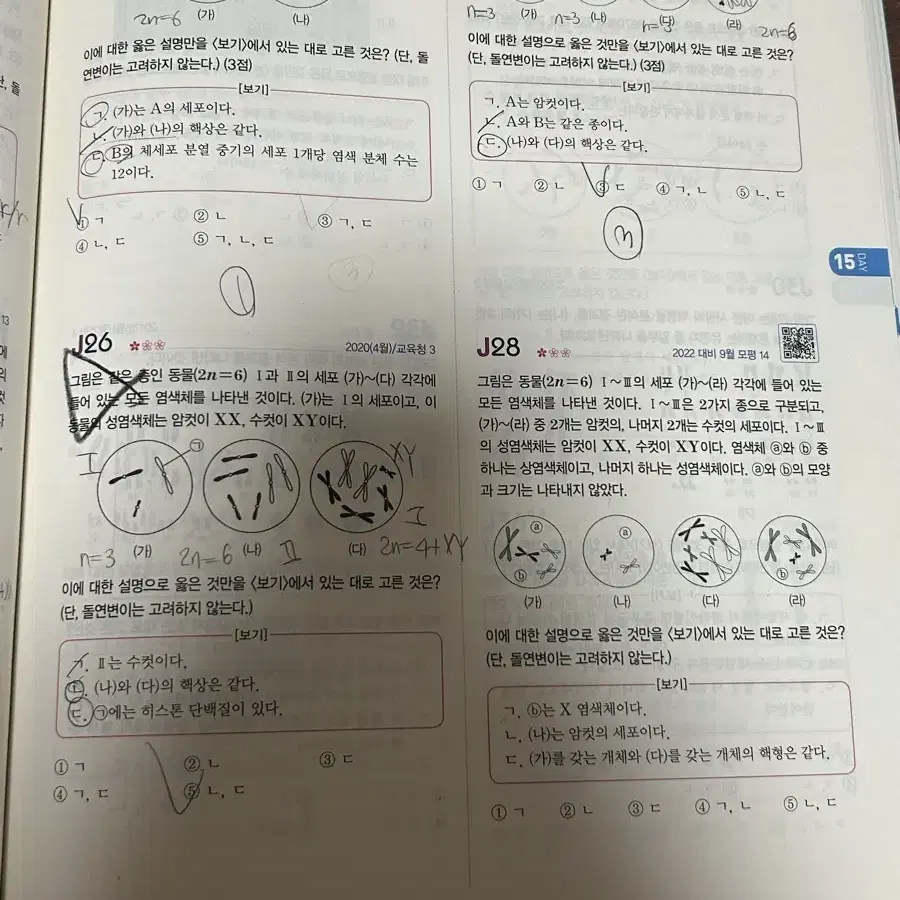 2n=6 (가) (나)
이에 대한 옳은 설명만을 <보기>에서 있는 대로 고른 것은? (단, 돌
연변이는 고려하지 않는다.) (3점)
[보기]
ㄱ. (가)는 A의 세포이다.
ㄴ. (가)와 (나)의 핵상은 같다.
ㄷ. B의 체세포 분열 중기의 세포 1개당 염색 분체 수는
12이다.
① ㄱ ② ㄴ ③ ㄱ, ㄷ
④ ㄴ, ㄷ ⑤ ㄱ, ㄴ, ㄷ
①
J26
2020(4월)/교육청 3
그림은 같은 종인 동물(2n=6) Ⅰ과 Ⅱ의 세포 (가)~(다) 각각에
들어 있는 모든 염색체를 나타낸 것이다. (가)는 Ⅰ의 세포이고, 이
동물의 성염색체는 암컷이 XX, 수컷이 XY이다.
Ⅰ ㉠ XY
Ⅰ
n=3 (가) 2n=6 (나) Ⅱ (다) 2n=4+XY
이에 대한 설명으로 옳은 것만을 <보기>에서 있는 대로 고른 것은?
(단, 돌연변이는 고려하지 않는다.)
[보기]
ㄱ. Ⅱ는 수컷이다.
ㄴ. (나)와 (다)의 핵상은 같다.
ㄷ. ㉠에는 히스톤 단백질이 있다.
① ㄱ ② ㄴ ③ ㄷ
④ ㄱ, ㄷ ⑤ ㄴ, ㄷ
n=3 (가) n=3 (나) n=3 (다) (라) 2n=6
이에 대한 설명으로 옳은 것만을 <보기>에서 있는 대로 고른 것은?
(단, 돌연변이는 고려하지 않는다.) (3점)
[보기]
ㄱ. A는 암컷이다.
ㄴ. A와 B는 같은 종이다.
ㄷ. (나)와 (다)의 핵상은 같다.
① ㄱ ② ㄴ ③ ㄷ ④ ㄱ, ㄴ ⑤ ㄴ, ㄷ
15 DAY
J28
2022 대비 9월 모평 14
그림은 동물(2n=6) Ⅰ~Ⅲ의 세포 (가)~(라) 각각에 들어 있는
모든 염색체를 나타낸 것이다. Ⅰ~Ⅲ은 2가지 종으로 구분되고,
(가)~(라) 중 2개는 암컷의, 나머지 2개는 수컷의 세포이다. Ⅰ~Ⅲ
의 성염색체는 암컷이 XX, 수컷이 XY이다. 염색체 ⓐ와 ⓑ 중
하나는 상염색체이고, 나머지 하나는 성염색체이다. ⓐ와 ⓑ의 모양
과 크기는 나타내지 않았다.
ⓐ ⓐ
ⓑ ⓑ
(가) (나) (다) (라)
이에 대한 설명으로 옳은 것만을 <보기>에서 있는 대로 고른 것은?
(단, 돌연변이는 고려하지 않는다.)
[보기]
ㄱ. ⓑ는 X 염색체이다.
ㄴ. (나)는 암컷의 세포이다.
ㄷ. (가)를 갖는 개체와 (다)를 갖는 개체의 핵형은 같다.
① ㄱ ② ㄴ ③ ㄷ ④ ㄱ, ㄴ ⑤ ㄴ, ㄷ